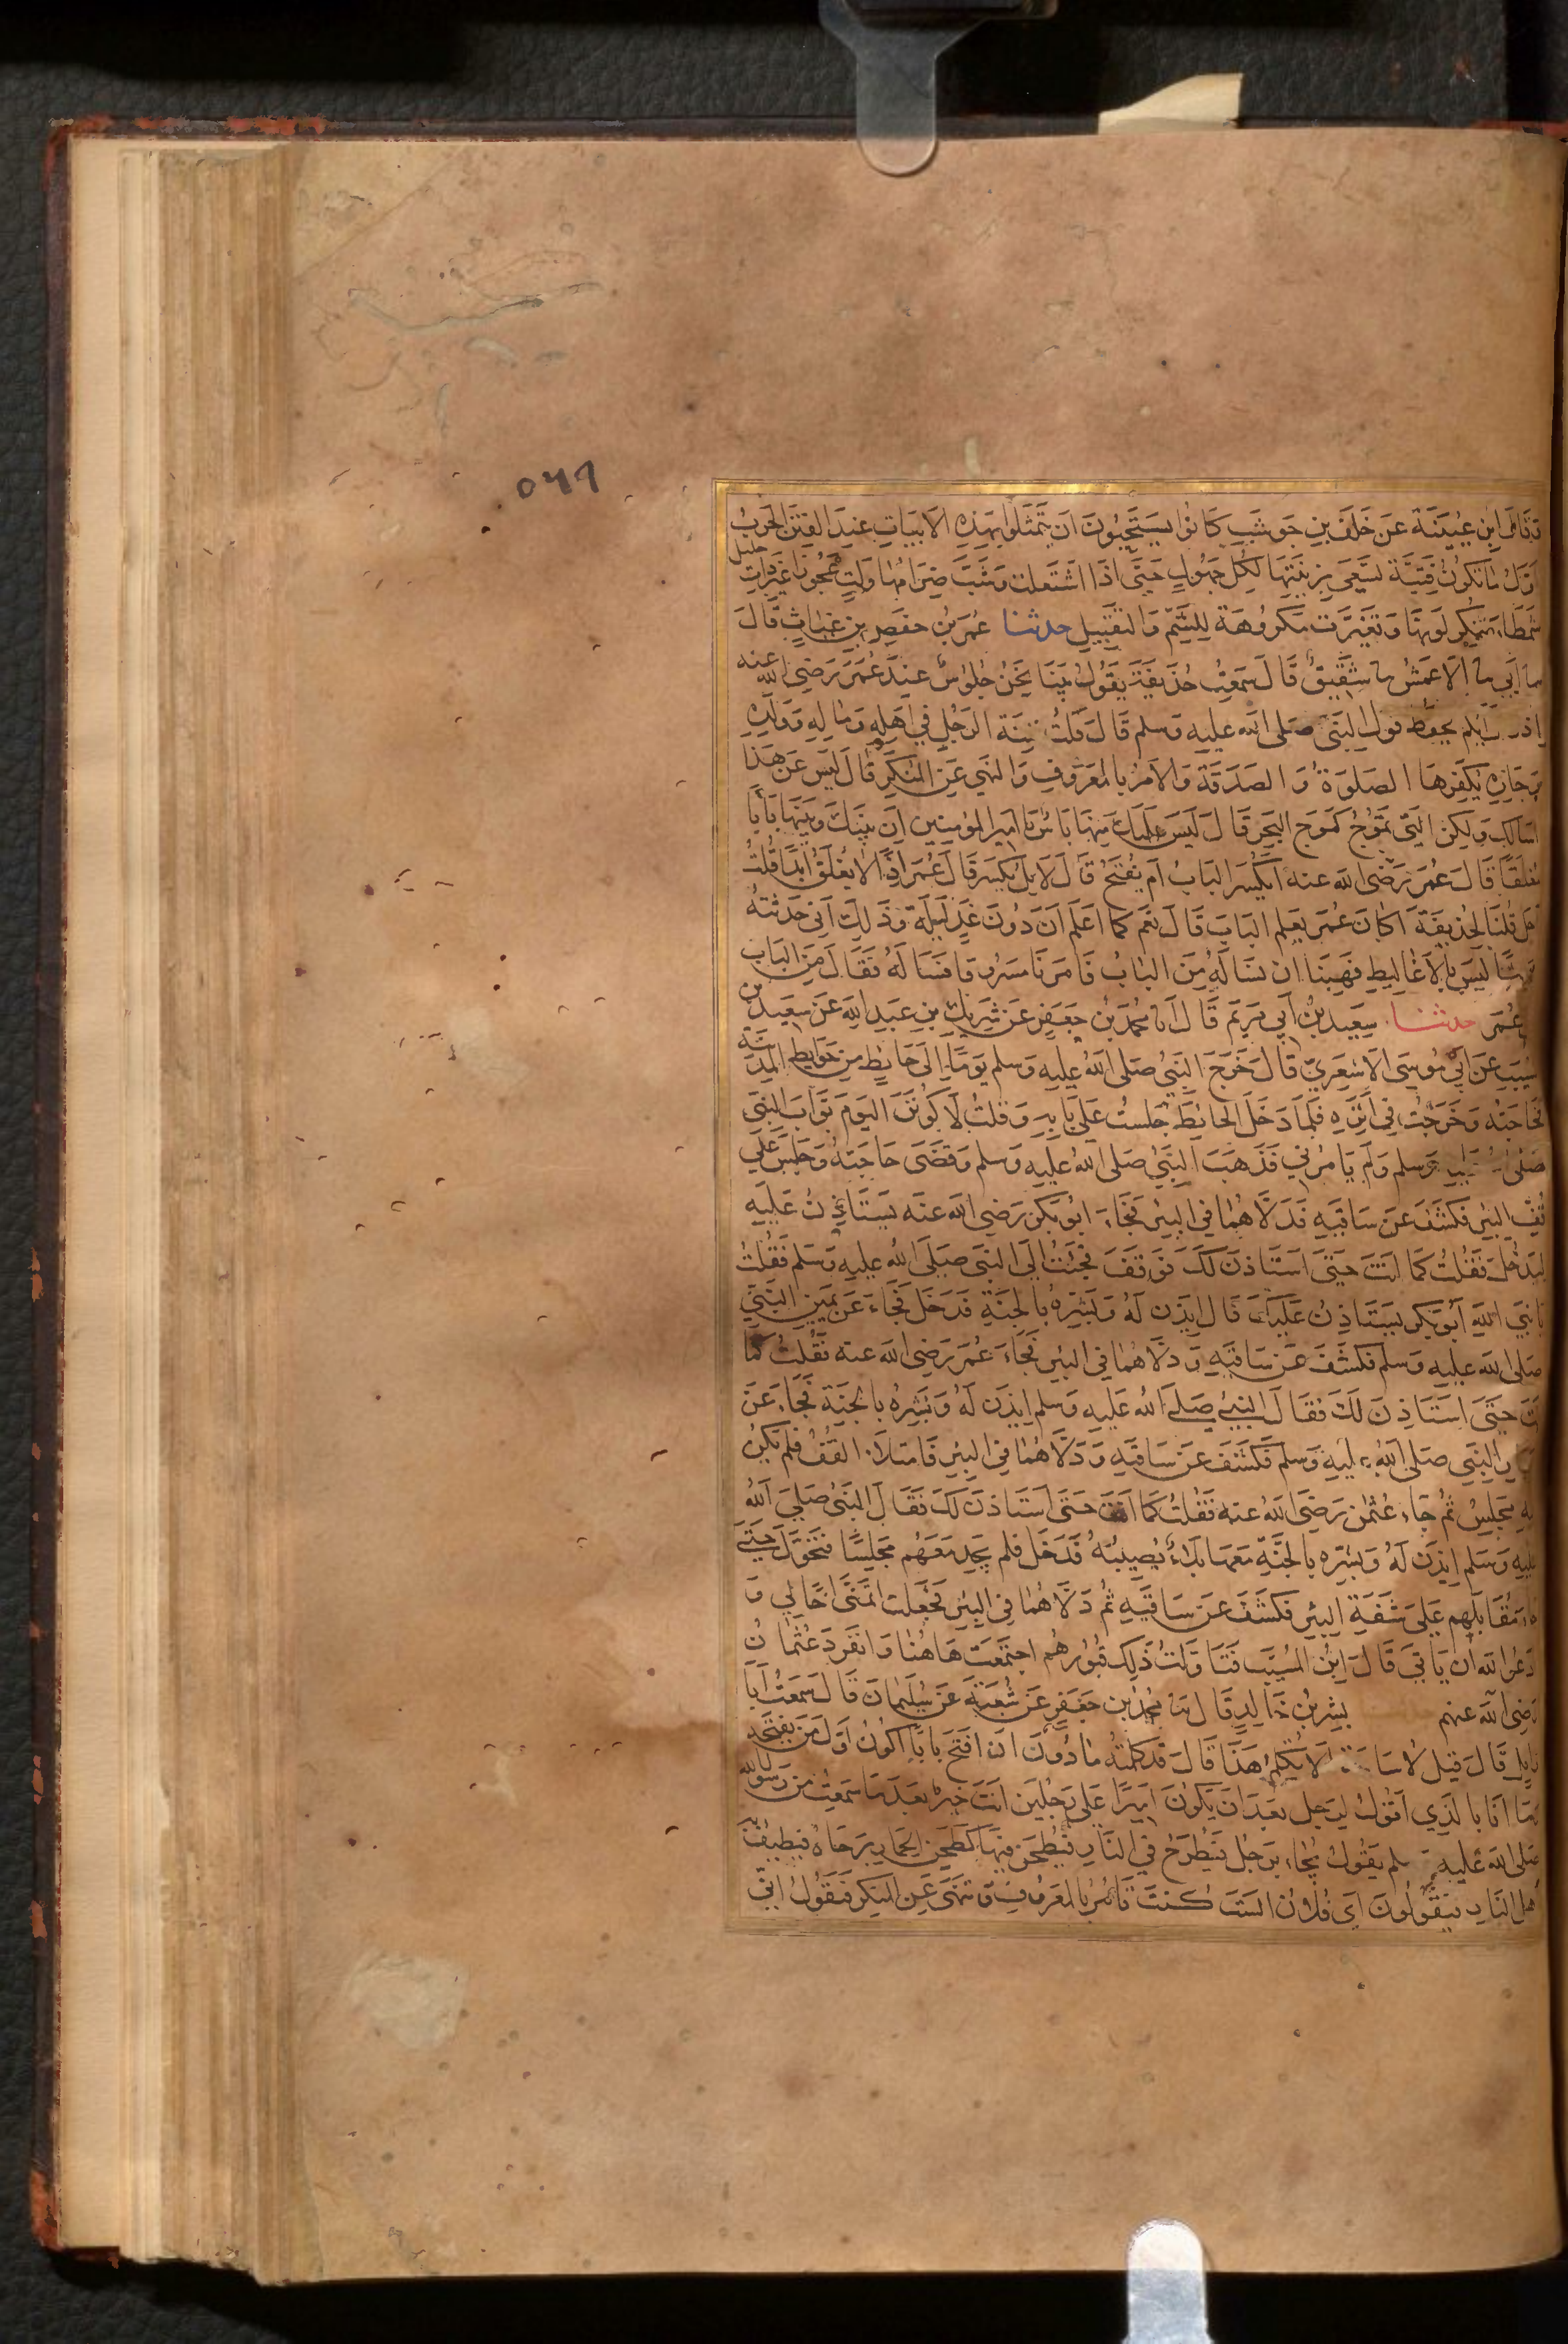 ٥٦٦
وقال ابن عيينة عن خلف بن حوشب كانوا يستحبون ان يتمثلوا بهذه الابيات عند الفتن الحرب
اول ما تكون فتية تسعى بزينتها لكل جهول حتى اذا اشتعلت وشب ضرامها ولت عجوزا غير ذات حليل
شمطاء ينكر لونها وتغيرت مكروهة للشم والتقبيل حدثنا عمر بن حفص بن غياث قال
سا ابي سا الاعمش سا شقيق قال سمعت حذيفة يقول بينا نحن جلوس عند عمر رضي الله عنه
اذ ايكم يحفظ قول النبي صلى الله عليه وسلم قال قلت فتنة الرجل في اهله وماله وولده
وجاره يكفرها الصلوة والصدقة والامر بالمعروف والنهي عن المنكر قال ليس عن هذا
اسالك ولكن التي تموج كموج البحر قال ليس عليك منها باس يا امير المؤمنين ان بينك وبينها بابا
مغلقا قال عمر رضي الله عنه ايكسر الباب ام يفتح قال لا بل يكسر قال عمر اذا لا يغلق ابدا قلت
اجل قلنا لحذيفة اكان عمر يعلم الباب قال نعم كما اعلم ان دون غد ليلة وذلك اني حدثته
حديثا ليس بالاغاليط فهبنا ان نساله من الباب فامرنا مسروقا فساله فقال من الباب
عمر حدثنا سعيد بن ابي مريم قال انا محمد بن جعفر عن شريك بن عبد الله عن سعيد بن
المسيب عن ابي موسى الاشعري قال خرج النبي صلى الله عليه وسلم يوما الى حائط من حوايط المدينة
لحاجته وخرجت في اثره فلما دخل الحائط جلست على بابه وقلت لاكونن اليوم بواب النبي
صلى عليه وسلم ولم يامرني فذهب النبي صلى الله عليه وسلم وقضى حاجته وجلس على
قف البئر فكشف عن ساقيه فدلاهما في البئر فجاء ابو بكر رضي الله عنه يستاذن عليه
ليدخل فقلت كما انت حتى استاذن لك فوقف فجئت الى النبي صلى الله عليه وسلم فقلت
يا نبي الله ابو بكر يستاذن عليك قال ايذن له وبشره بالجنة فدخل فجاء عن يمين النبي
صلى الله عليه وسلم فكشف عن ساقيه ودلاهما في البئر فجاء عمر رضي الله عنه فقلت كما
انت حتى استاذن لك فقال النبي صلى الله عليه وسلم ايذن له وبشره بالجنة فجاء عن
يسار النبي صلى الله عليه وسلم فكشف عن ساقيه ودلاهما في البئر فامتلا القف فلم يكن
فيه مجلس ثم جاء عثمن رضي الله عنه فقلت كما انت حتى استاذن لك فقال النبي صلى الله
عليه وسلم ايذن له وبشره بالجنة معها بلاء يصيبه فدخل فلم يجد معهم مجلسا فتحول حتى
جاء مقابلهم على شفة البئر فكشف عن ساقيه ثم دلاهما في البئر فجعلت اتمنى اخا لي و
ادعو الله ان ياتي قال ابن المسيب فتاولت ذلك قبورهم اجتمعت هاهنا وانفرد عثمان
رضي الله عنهم بشر بن خالد قال محمد بن جعفر عن شعبة عن سليمان قال سمعت ابا
وايل قال قيل لاسامة الا تكلم هذا قال قد كلمته ما دون ان افتح بابا اكون اول من يفتحه
وما انا بالذي اقول لرجل بعد ان يكون اميرا على رجلين انت خير بعد ما سمعت من رسول الله
صلى الله عليه وسلم يقول يجاء برجل فيطرح في النار فيطحن فيها كطحن الحمار برحاه فيطيف به
اهل النار فيقولون اي فلان الست كنت تامر بالمعروف وتنهى عن المنكر فيقول اني